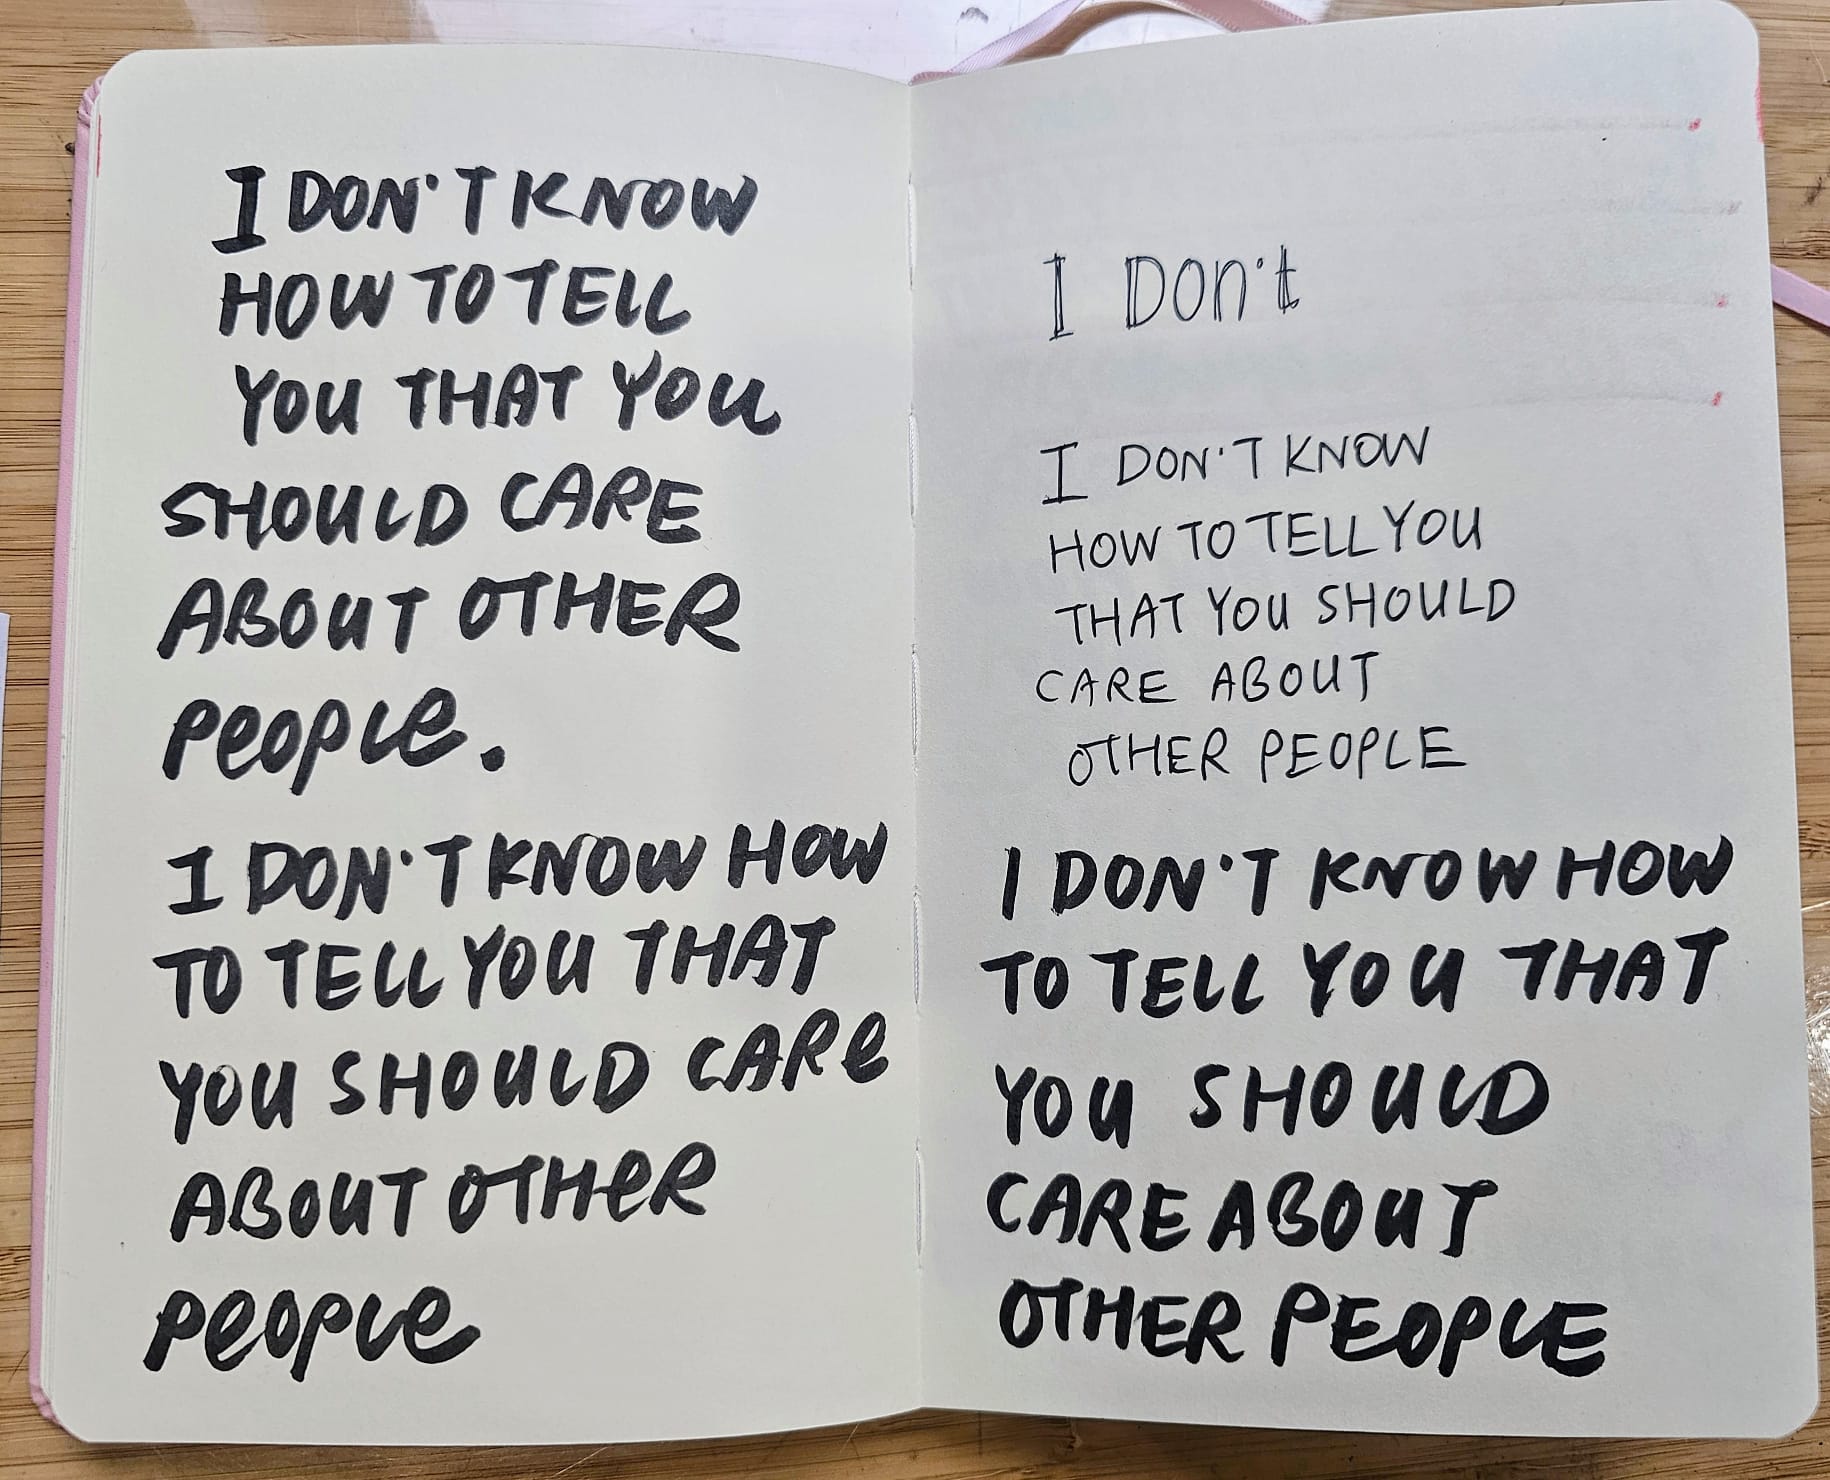 I DON'T KNOW
HOW TO TELL
YOU THAT YOU
SHOULD CARE
ABOUT OTHER
PEOPLE.
I DON'T KNOW HOW
TO TELL YOU THAT
YOU SHOULD CARE
ABOUT OTHER
PEOPLE
I Don't
I DON'T KNOW
HOW TO TELL YOU
THAT YOU SHOULD
CARE ABOUT
OTHER PEOPLE
I DON'T KNOW HOW
TO TELL YOU THAT
YOU SHOULD
CARE ABOUT
OTHER PEOPLE